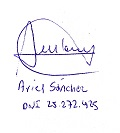 Ariel Sánchez
DNI 28.272.925